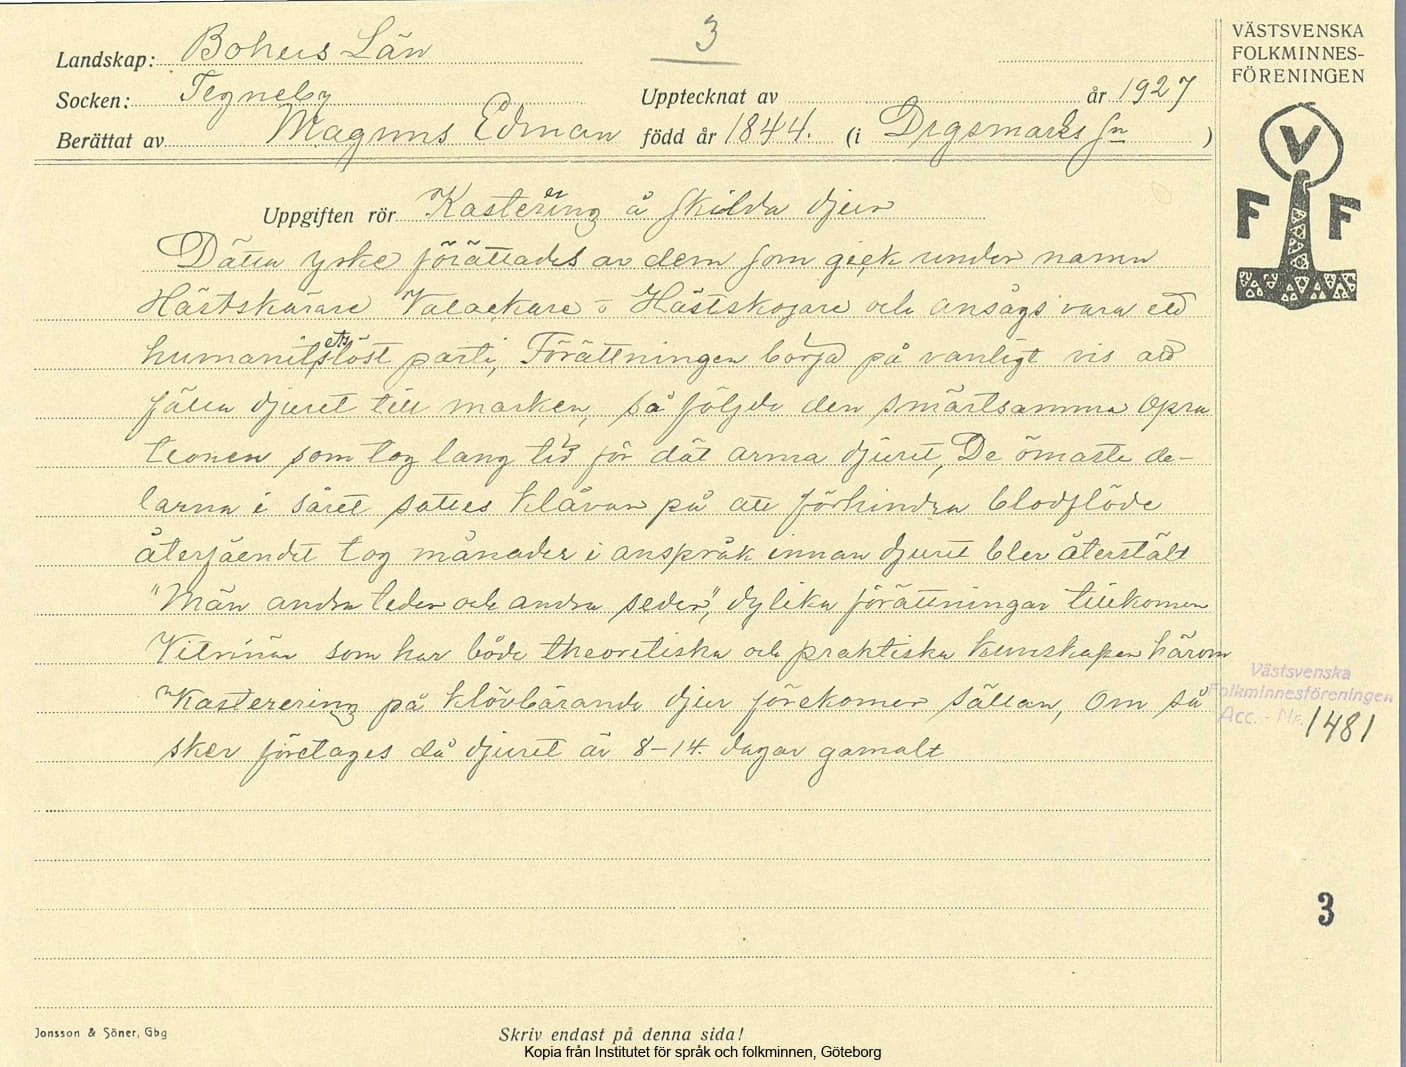 3
Landskap: Bohus Län
Socken: Tegneby
Upptecknat av år 1927
Berättat av Magnus Edman född år 1844. (i Drgsmarks sn )
VÄSTSVENSKA
FOLKMINNES-
FÖRENINGEN
V
F F
Uppgiften rör Kasterering å skilda djur
Dätta yrke förättades av dem som gick under namn
Hästskärare Valackare o Hästskojare och ansågs vara ett
humanitetslöst parti, Förättningen börja på vanligt vis att
fälla djuret till marken, så följde den smärtsamma opra
tionen som tog lang tid för dät arma djuret, De ömaste de-
larna i såret sattes klåvar på att förhindra blodflöde
återfåendet tog månader i anspråk innan djuret blev återstält
"Män andra tider och andra seder", dylika förättningar tillkomer
Vitrinär som har både theoretiska och praktiska kunskaper härom
Kasterering på klövbärande djur förekomer sällan, Om så
sker företages då djuret är 8-14. dagar gamalt
Västsvenska
Folkminnesföreningen
Acc. - Nr. 1481
3
Jonsson & Söner, Gbg
Skriv endast på denna sida!
Kopia från Institutet för språk och folkminnen, Göteborg